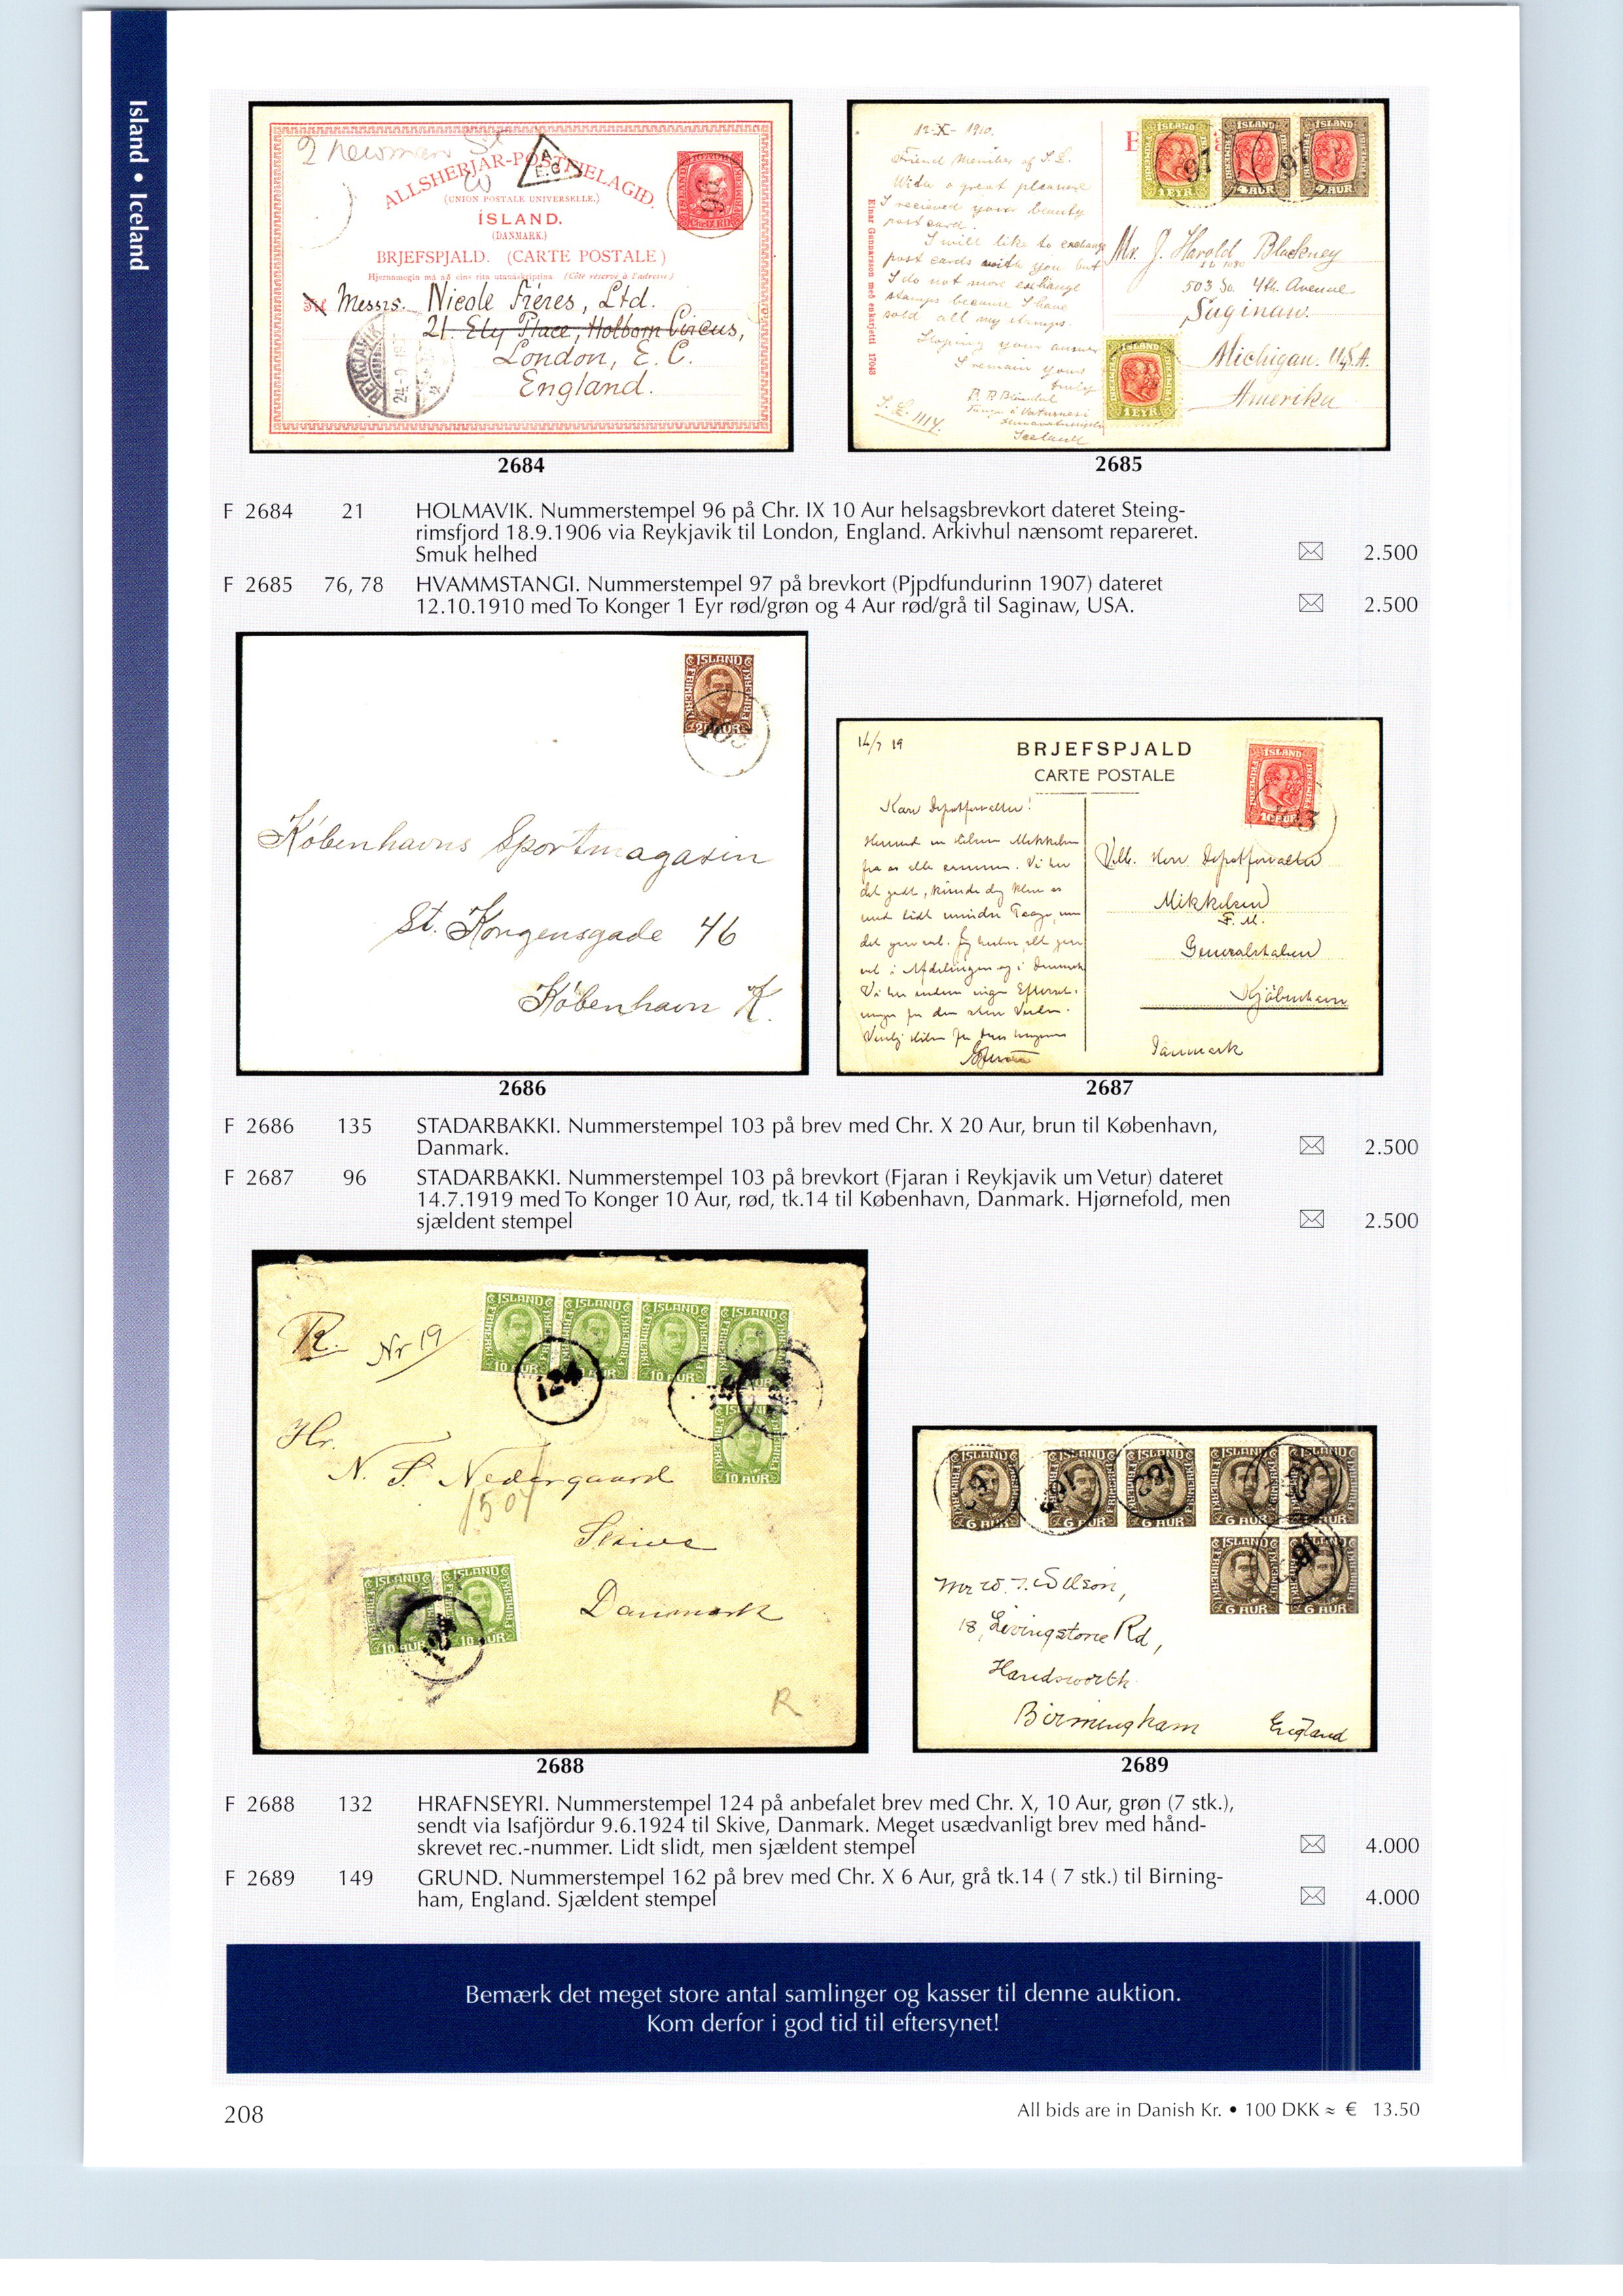 Island • Iceland
2 Newman St
W
A
E.C
ALLSHERJAR-POSTFJELAGID.
(UNION POSTALE UNIVERSELLE.)
ÍSLAND.
(DANMARK.)
BRJEFSPJALD. (CARTE POSTALE)
Hjernamegin má að eins rita utanáskriptina. (Côté réservé à l'adresse.)
Til Messrs. Nicole Fréres, Ltd.
21. Ely Place, Holborn Circus,
London, E. C.
England.
REYKJAVIK
96
2684
12-X- 1910.
Friend Member of S.E.
With a great pleasure
I recieved your beauty
post card.
I will like to exchange
post cards with you but
I do not more exchange
stamps because I have
sold all my stamps.
Hoping your answer
I remain yours
truly
Iceland
Einar Gunnarsson með einkarjetti 17043
ÍSLAND
1 EYR
4 AUR
4 AUR
97
Mr. J. Harold Blackney
503 So. 4th. Avenue
Saginaw.
Michigan. U.S.A.
Amerika
ÍSLAND
1 EYR
2685
F 2684 21 HOLMAVIK. Nummerstempel 96 på Chr. IX 10 Aur helsagsbrevkort dateret Steing-
rimsfjord 18.9.1906 via Reykjavik til London, England. Arkivhul nænsomt repareret.
Smuk helhed 2.500
F 2685 76, 78 HVAMMSTANGI. Nummerstempel 97 på brevkort (Pjpdfundurinn 1907) dateret
12.10.1910 med To Konger 1 Eyr rød/grøn og 4 Aur rød/grå til Saginaw, USA. 2.500
ISLAND
20 AUR
103
Københavns Sportmagasin
St. Kongensgade 46
København K.
2686
14/7 19
BRJEFSPJALD
CARTE POSTALE
ÍSLAND
10 AUR
Mikkelsen
F. M.
Generalstaben
Kjøbenhavn
Danmark
2687
F 2686 135 STADARBAKKI. Nummerstempel 103 på brev med Chr. X 20 Aur, brun til København,
Danmark. 2.500
F 2687 96 STADARBAKKI. Nummerstempel 103 på brevkort (Fjaran i Reykjavik um Vetur) dateret
14.7.1919 med To Konger 10 Aur, rød, tk.14 til København, Danmark. Hjørnefold, men
sjældent stempel 2.500
R. Nr 19
ISLAND ISLAND ISLAND ISLAND
10 AUR
124
Hr.
N. S. Nedergaard
1507
Skive
Danmark
R
2688
ISLAND
6 AUR
Mr W. T. Wilson,
18, Livingstone Rd,
Handsworth
Birmingham England
2689
F 2688 132 HRAFNSEYRI. Nummerstempel 124 på anbefalet brev med Chr. X, 10 Aur, grøn (7 stk.),
sendt via Isafjördur 9.6.1924 til Skive, Danmark. Meget usædvanligt brev med hånd-
skrevet rec.-nummer. Lidt slidt, men sjældent stempel 4.000
F 2689 149 GRUND. Nummerstempel 162 på brev med Chr. X 6 Aur, grå tk.14 ( 7 stk.) til Birning-
ham, England. Sjældent stempel 4.000
Bemærk det meget store antal samlinger og kasser til denne auktion.
Kom derfor i god tid til eftersynet!
208
All bids are in Danish Kr. • 100 DKK ≈ € 13.50